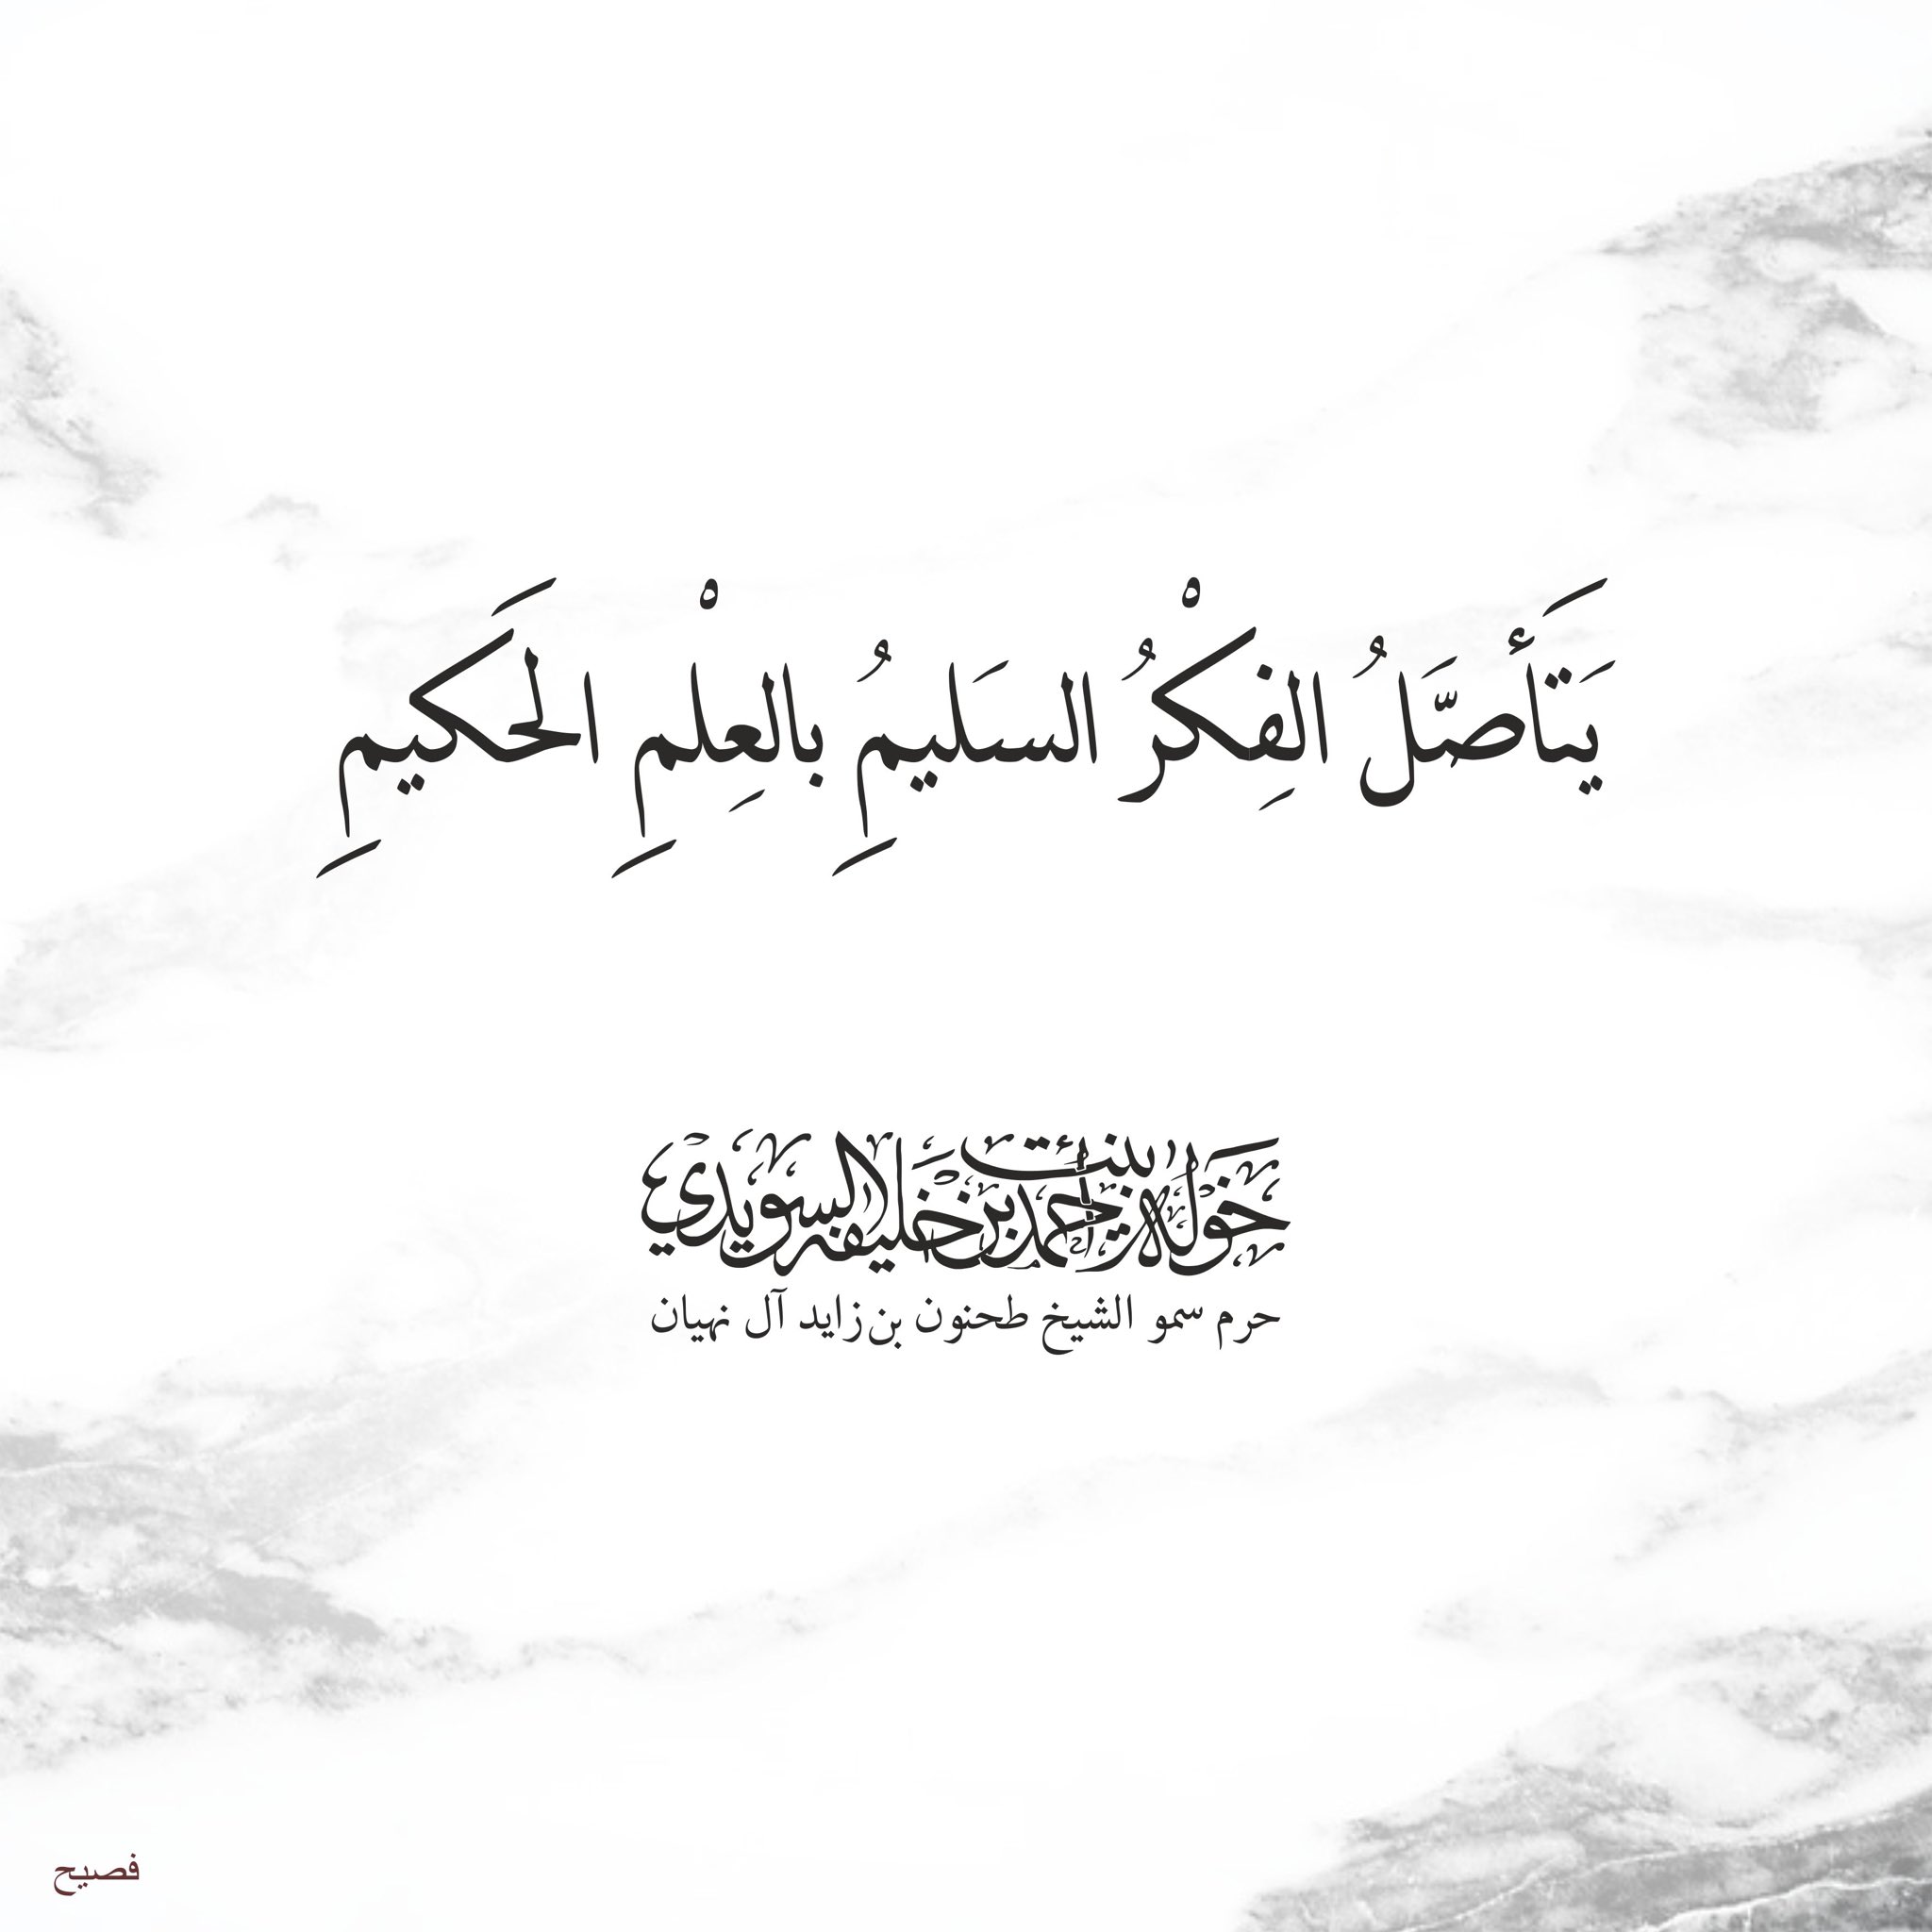 يَتَأَصَّلُ الفِكْرُ السَليمُِ بالعِلْمِ الحَكيمِ
خولة بنت أحمد بن خليفة السويدي
حرم سمو الشيخ طحنون بن زايد آل نهيان
فصيح